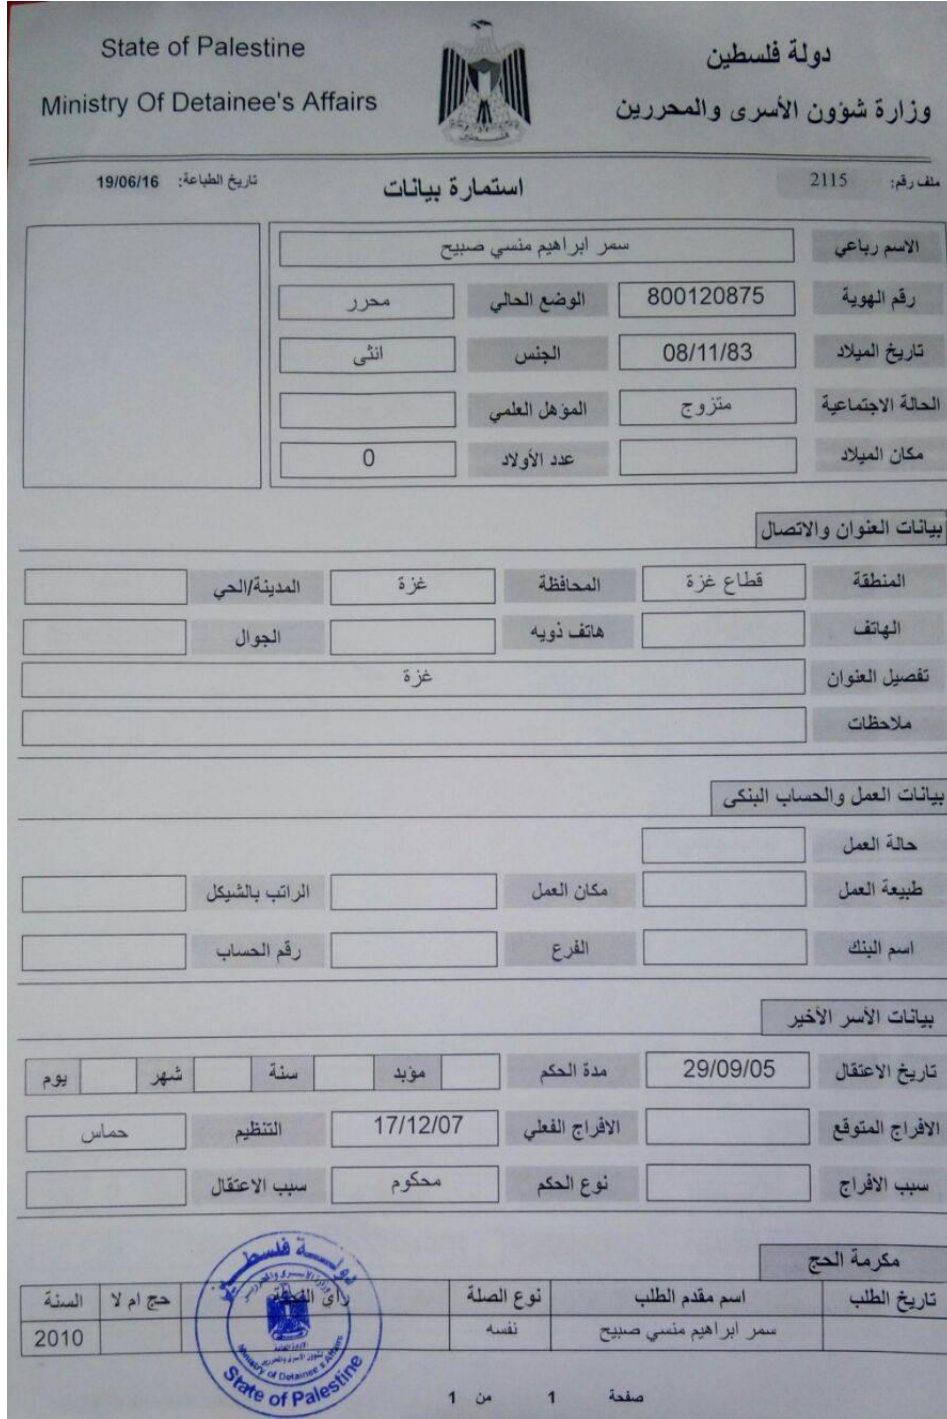 State of Palestine
دولة فلسطين
Ministry Of Detainee's Affairs
وزارة شؤون الأسرى والمحررين
ملف رقم: 2115
استمارة بيانات
تاريخ الطباعة: 19/06/16
الاسم رباعي سمر ابراهيم منسي صبيح
رقم الهوية 800120875 الوضع الحالي محرر
تاريخ الميلاد 08/11/83 الجنس انثى
الحالة الاجتماعية متزوج المؤهل العلمي
مكان الميلاد عدد الأولاد 0
بيانات العنوان والاتصال
المنطقة قطاع غزة المحافظة غزة المدينة/الحي
الهاتف هاتف ذويه الجوال
تفصيل العنوان غزة
ملاحظات
بيانات العمل والحساب البنكى
حالة العمل
طبيعة العمل مكان العمل الراتب بالشيكل
اسم البنك الفرع رقم الحساب
بيانات الأسر الأخير
تاريخ الاعتقال 29/09/05 مدة الحكم مؤبد سنة شهر يوم
الافراج المتوقع الافراج الفعلي 17/12/07 التنظيم حماس
سبب الافراج نوع الحكم محكوم سبب الاعتقال
مكرمة الحج
تاريخ الطلب اسم مقدم الطلب نوع الصلة رأي اللجنة حج ام لا السنة
سمر ابراهيم منسي صبيح نفسه 2010
دولة فلسطين
وزارة شؤون الأسرى والمحررين
Ministry of Detainee's Affairs
State of Palestine
صفحة 1 من 1